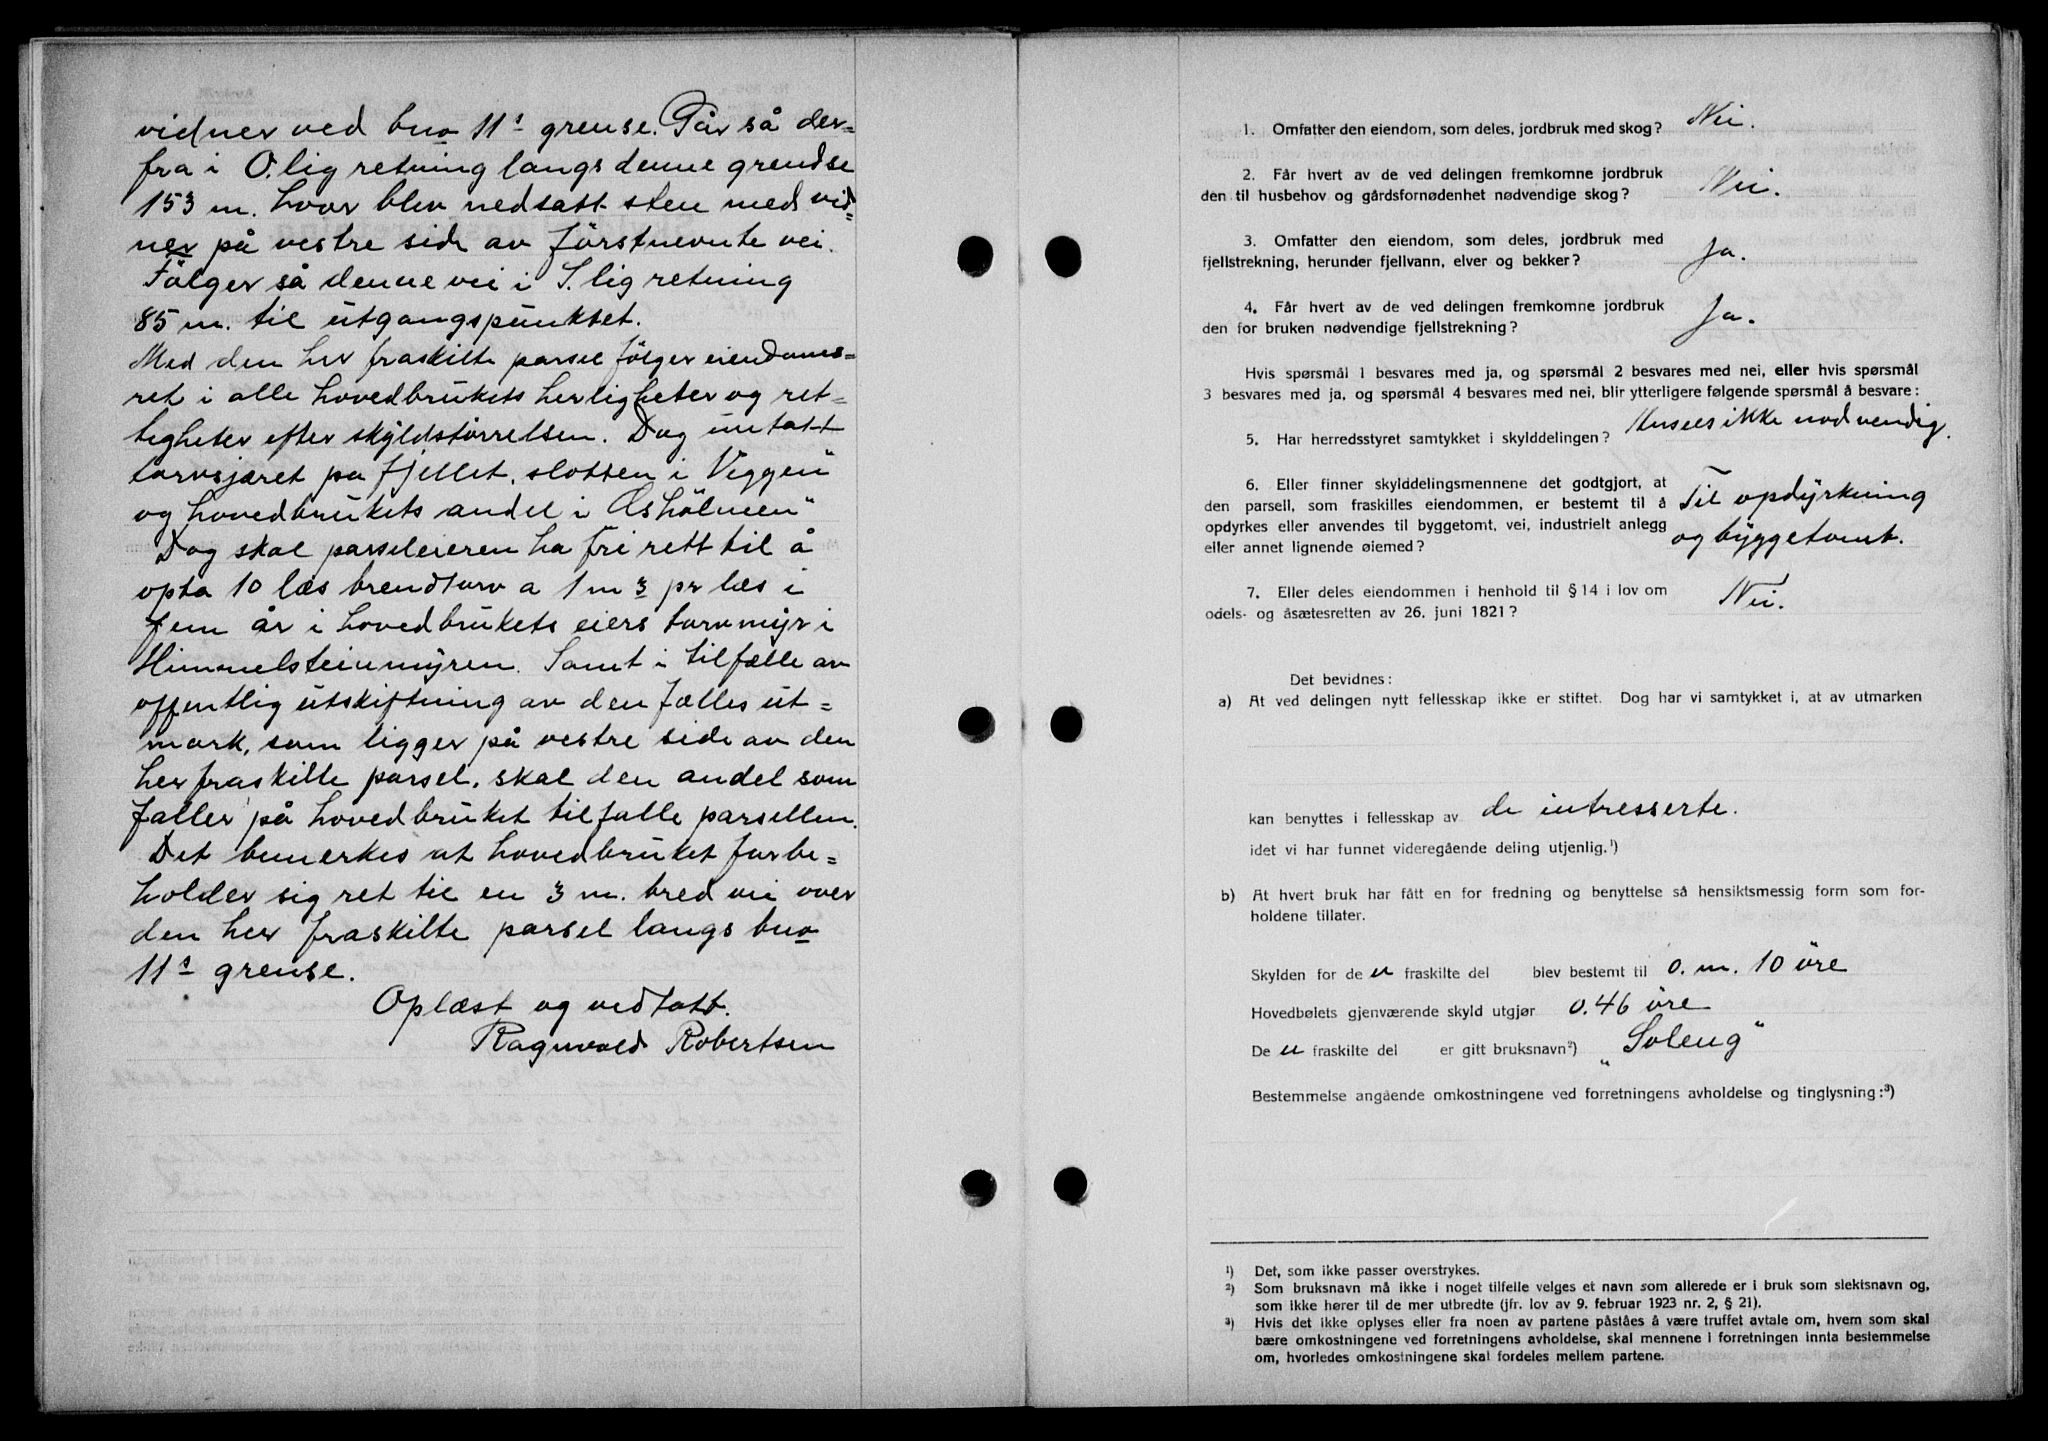 vidner ved bno 11s grense. Går så der=
fra i O.lig retning langs denne grendse
153 m. hvor blev nedsatt sten med vid=
ner på vestre side av förstnevnte vei.
Fölger så denne vei i S.lig retning
85 m. til utgangspunktet.
Med den her fraskilte parsel fölger eiendoms=
ret i alle hovedbrukets herligheter og ret=
tigheter efter skyldstörrelsen. Dog untatt
torvsjæret på fjellet, slotten i Viggen"
og hovedbrukets andel i Osholmen"
Dog skal parseleieren ha fri rett til å
opta 10 læs brendtorv a 1 m 3 pr læs i
fem år i hovedbrukets eiers torvmyr i
Himmelsteinmyren. Samt i tilfælle av
offentlig utskiftning av den fælles ut=
mark, som ligger på vestre side av den
her fraskilte parsel, skal den andel som
faller på hovedbruket tilfalle parsellen.
Det bemerkes at hovedbruket forbe=
holder sig ret til en 3 m. bred vei over
den her fraskilte parsel langs bno
11s grense.
Oplæst og vedtatt.
Ragnvald Robertsen
1. Omfatter den eiendom, som deles, jordbruk med skog? Nei.
2. Får hvert av de ved delingen fremkomne jordbruk
den til husbehov og gårdsfornødenhet nødvendige skog? Nei.
3. Omfatter den eiendom, som deles, jordbruk med
fjellstrekning, herunder fjellvann, elver og bekker? Ja.
4. Får hvert av de ved delingen fremkomne jordbruk
den for bruken nødvendige fjellstrekning? Ja.
Hvis spørsmål 1 besvares med ja, og spørsmål 2 besvares med nei, eller hvis spørsmål
3 besvares med ja, og spørsmål 4 besvares med nei, blir ytterligere følgende spørsmål å besvare:
5. Har herredsstyret samtykket i skylddelingen? Ansees ikke nødvendig.
6. Eller finner skylddelingsmennene det godtgjort, at
den parsell, som fraskilles eiendommen, er bestemt til å Til opdyrkning
opdyrkes eller anvendes til byggetomt, vei, industrielt anlegg
eller annet lignende øiemed? og byggetomt.
7. Eller deles eiendommen i henhold til § 14 i lov om
odels- og åsætesretten av 26. juni 1821? Nei.
Det bevidnes:
a) At ved delingen nytt fellesskap ikke er stiftet. Dog har vi samtykket i, at av utmarken
kan benyttes i fellesskap av de intresserte.
idet vi har funnet videregående deling utjenlig.¹)
b) At hvert bruk har fått en for fredning og benyttelse så hensiktsmessig form som for-
holdene tillater.
Skylden for de n fraskilte del blev bestemt til 0. m. 10 öre
Hovedbølets gjenværende skyld utgjør 0.46 öre
De n fraskilte del er gitt bruksnavn²) „Soleng"
Bestemmelse angående omkostningene ved forretningens avholdelse og tinglysning:³)
¹) Det, som ikke passer overstrykes.
²) Som bruksnavn må ikke i noget tilfelle velges et navn som allerede er i bruk som slektsnavn og,
som ikke hører til de mer utbredte (jfr. lov av 9. februar 1923 nr. 2, § 21).
³) Hvis det ikke oplyses eller fra noen av partene påståes å være truffet avtale om, hvem som skal
bære omkostningene ved forretningens avholdelse, skal mennene i forretningen innta bestemmelse
om, hvorledes omkostningene skal fordeles mellem partene.